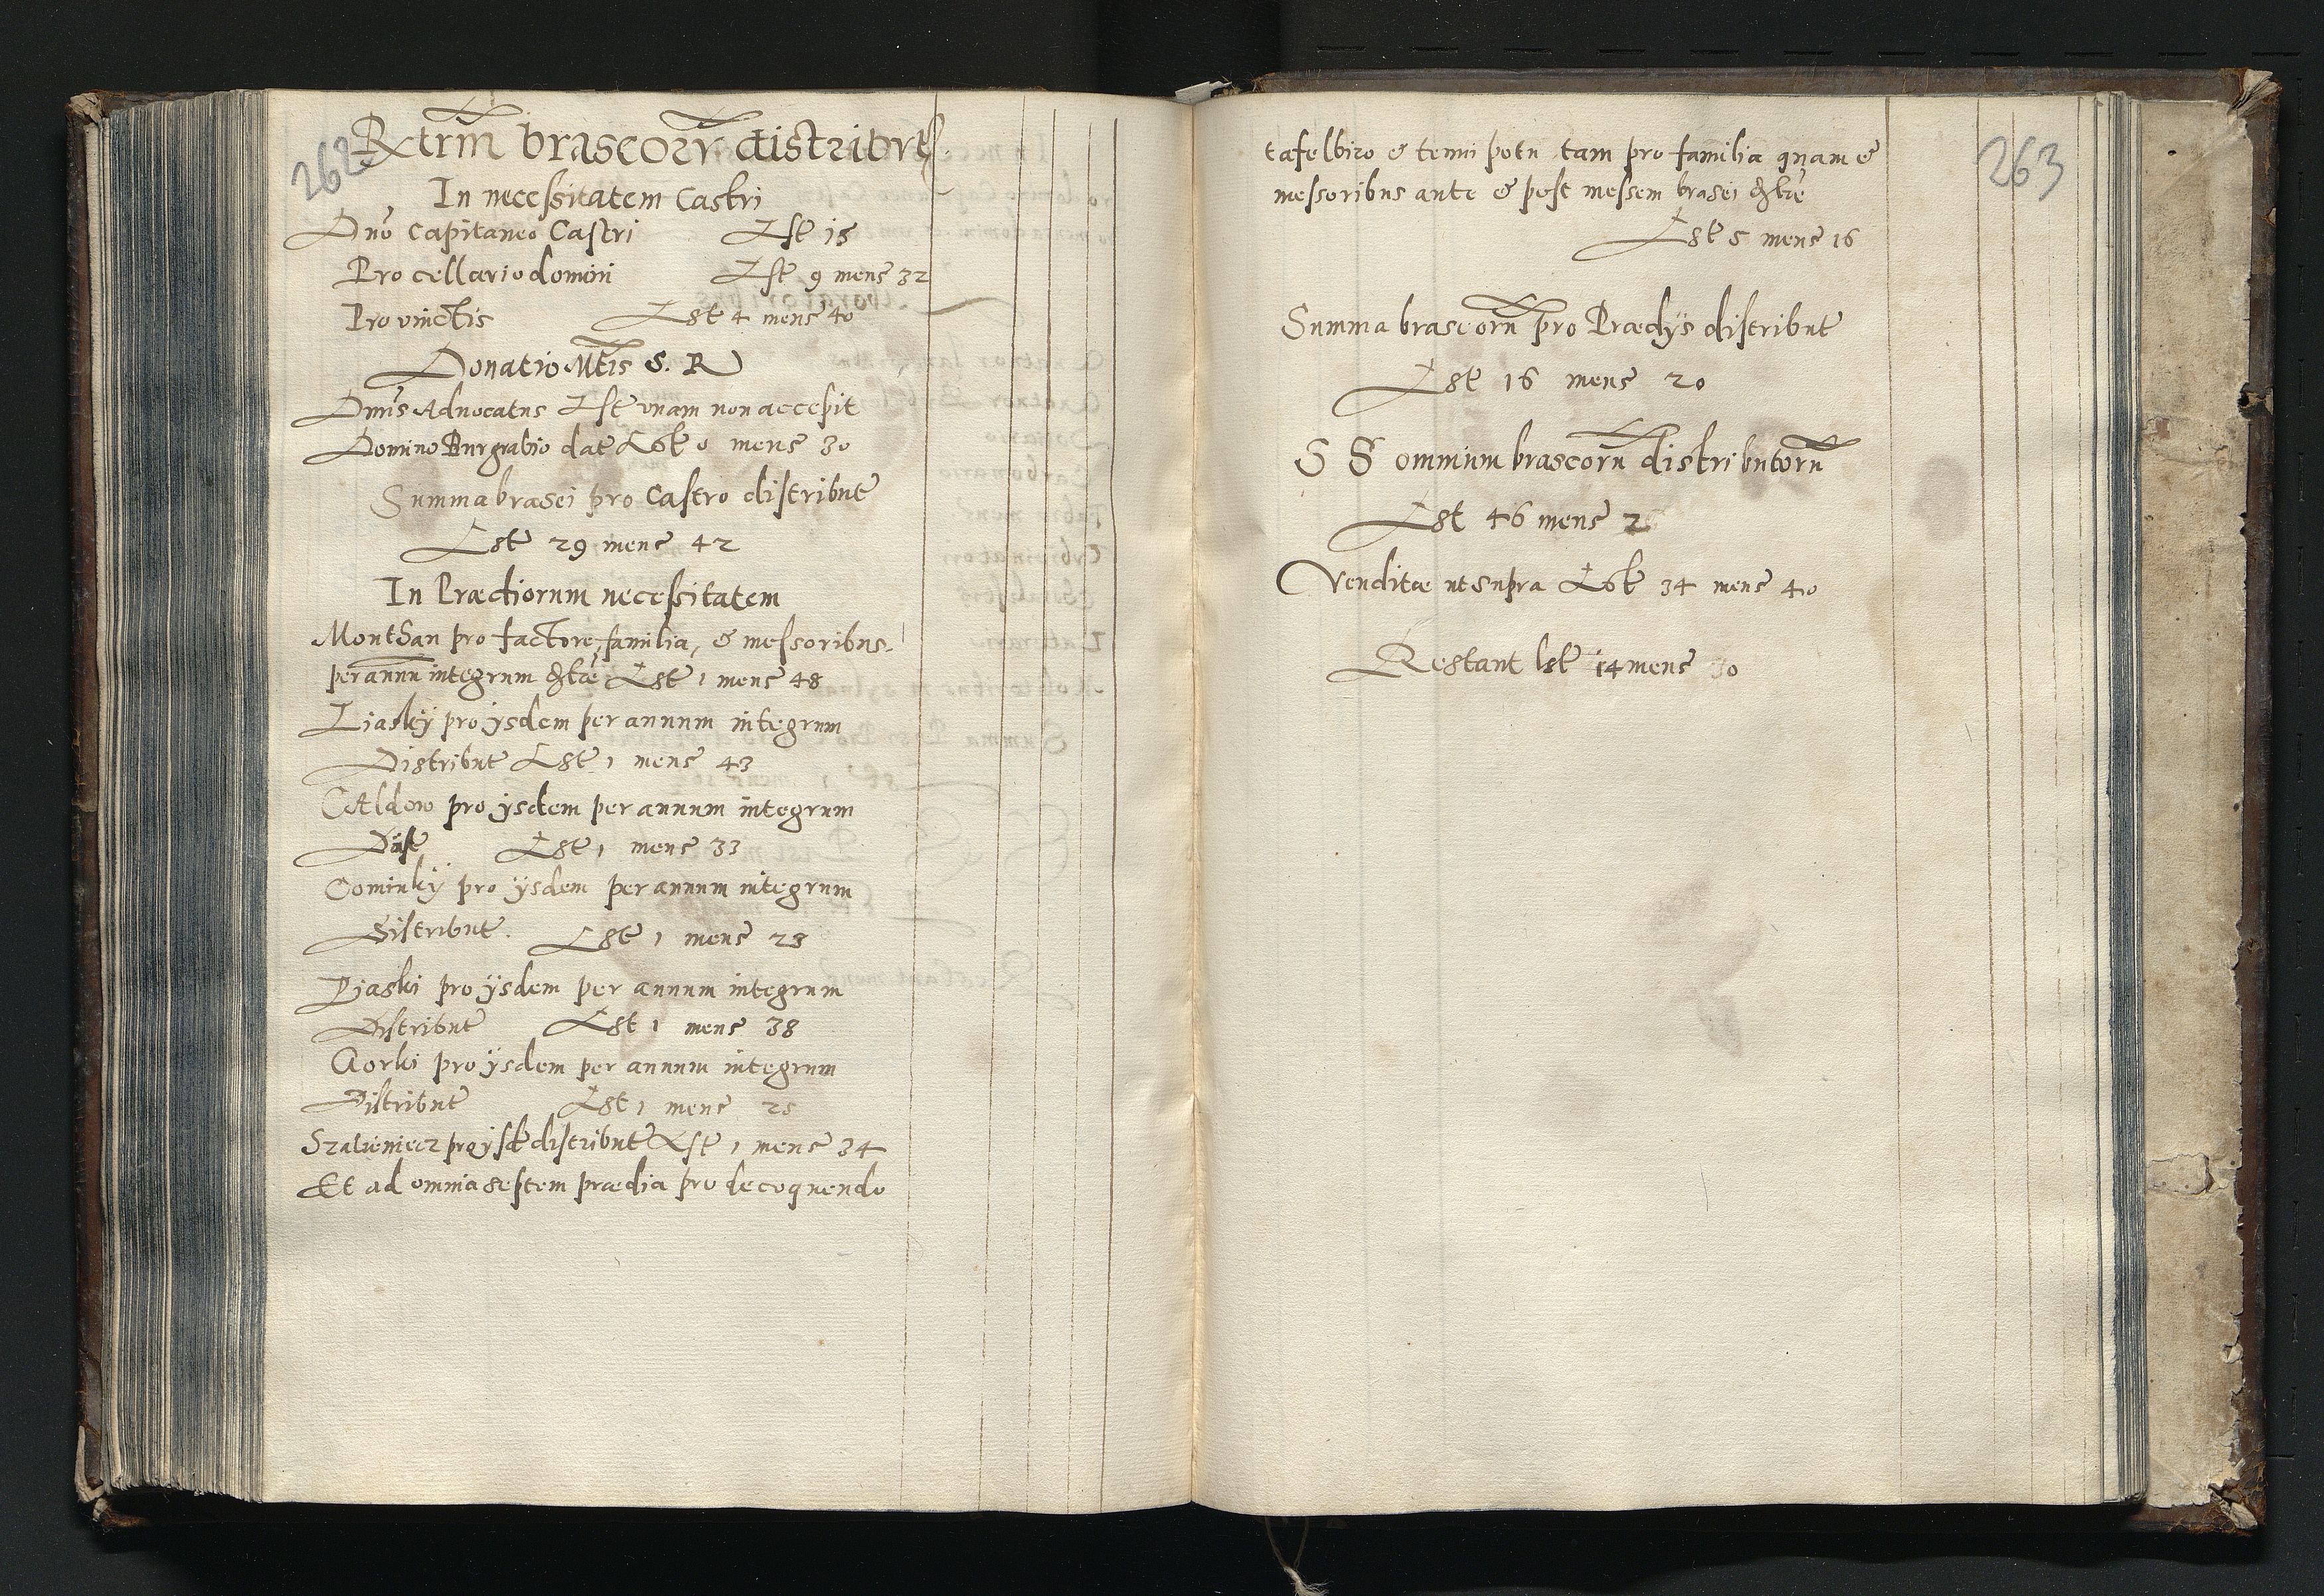 262
Rctrm̄ braseorū distribut
In necessitatem Castri
Dno Capitaneo Castri Lst 15
Pro cellario domini Lst 9 mens 32
Pro vinctis Lst 4 mens 40
Donatio Mtis S. R
Dnus Aduocatus Lst vnam non accepit
Domino Burgrabio dat Lst 0 mens 30
Summa brasei pro Castro distribut
Lst 29 mens 42
In Praediorum necessitatem
MontSan pro factore, familia, & messoribus
per annu integrum Lst 1 mens 48
Liasky pro ysdem per annum integrum
Distribut Lst 1 mens 43
Caldow pro ysdem per annum integrum
Dist Lst 1 mens 33
Cominky pro ysdem per annum integrum
Distribut. Lst 1 mens 23
Piaski pro ysdem per annum integrum
Distribut Lst 1 mens 38
Gorki pro ysdem per annum integrum
Distribut Lst 1 mens 25
Szaweniecz pro ysd distribut Lst 1 mens 34
Et ad omnia septem praedia pro decoquendo
263
tafelbiro & tenui potu tam pro familia quam &
messoribus ante & post messem brasei
Lst 5 mens 16
Summa braseoru pro Praedys distribut
Lst 16 mens 20
S S omnium braseoru distributoru
Lst 46 mens 2
Venditae ut supra Lst 34 mens 40
Restant lst 14 mens 30